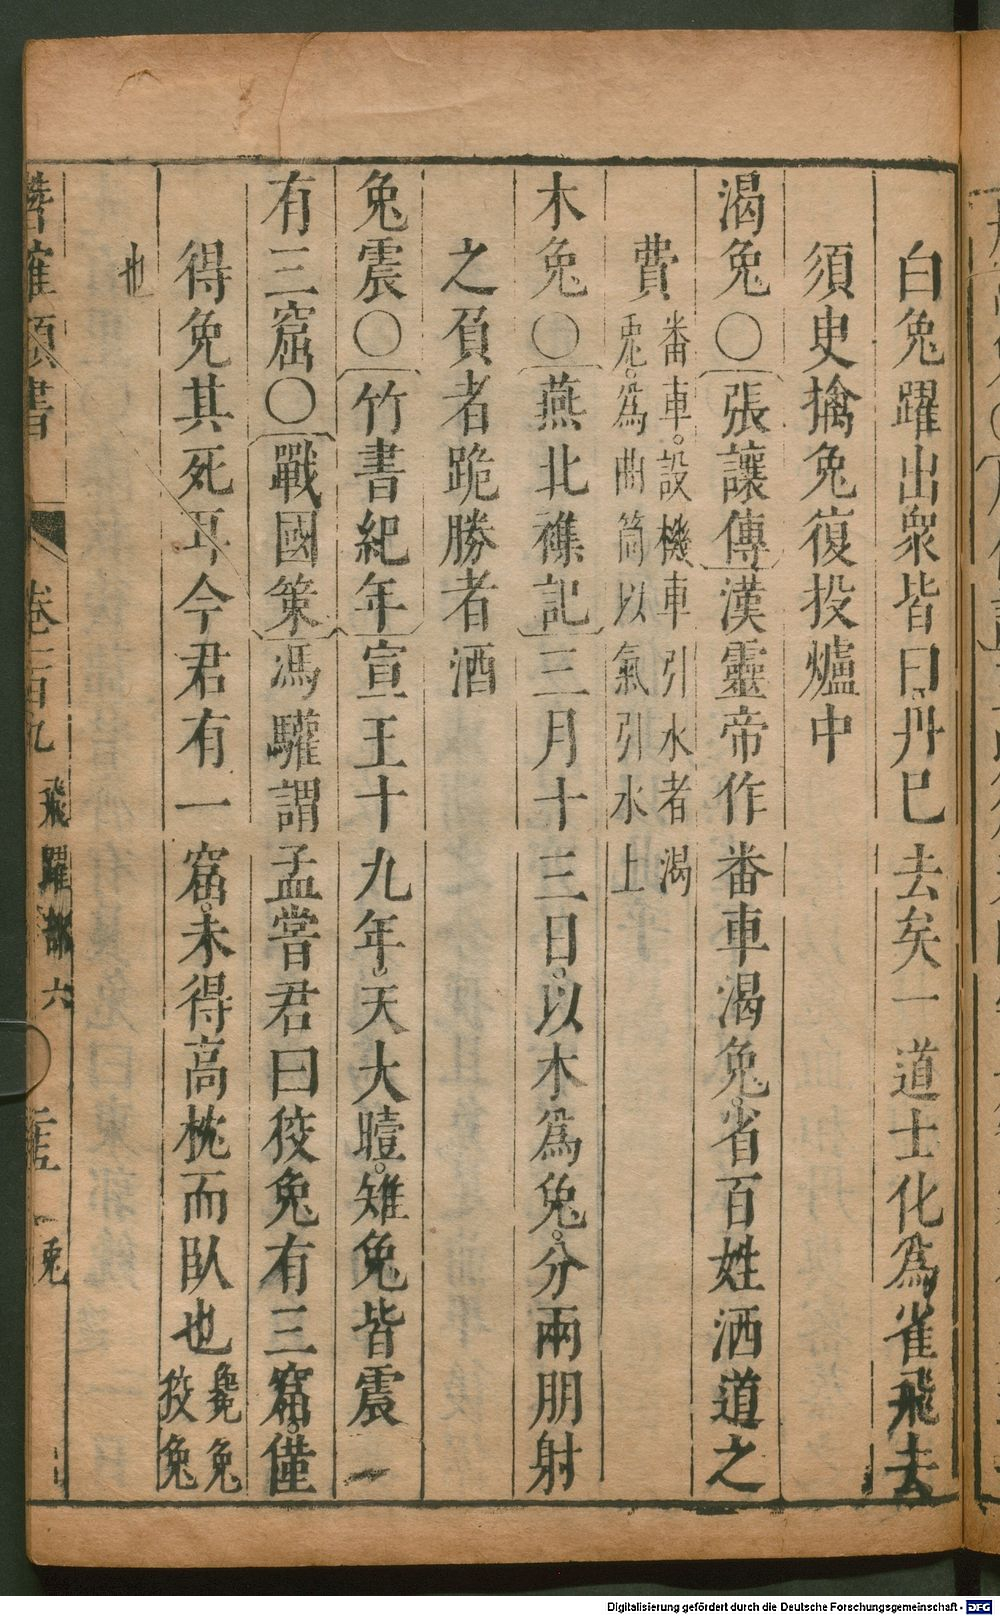 白兔躍出衆皆曰丹已去矣一道士化為雀飛去
須臾擒兔復投爐中
渴兔〇張讓傳漢靈帝作番車渴兔省百姓洒道之
費番車設機車引水者渴
兔為曲筒以氣引水上
木兔〇燕北襍記三月十三日以木為兔分兩朋射
之負者跪勝者酒
兔震〇竹書紀年宣王十九年天大曀雉兔皆震一
有三窟〇戰國策馮驩謂孟嘗君曰狡兔有三窟僅
得免其死耳今君有一窟未得高枕而臥也毚兔
狡兔
也
潛確類書
卷一百九 飛躍部六 兔
Digitalisierung gefördert durch die Deutsche Forschungsgemeinschaft - DFG